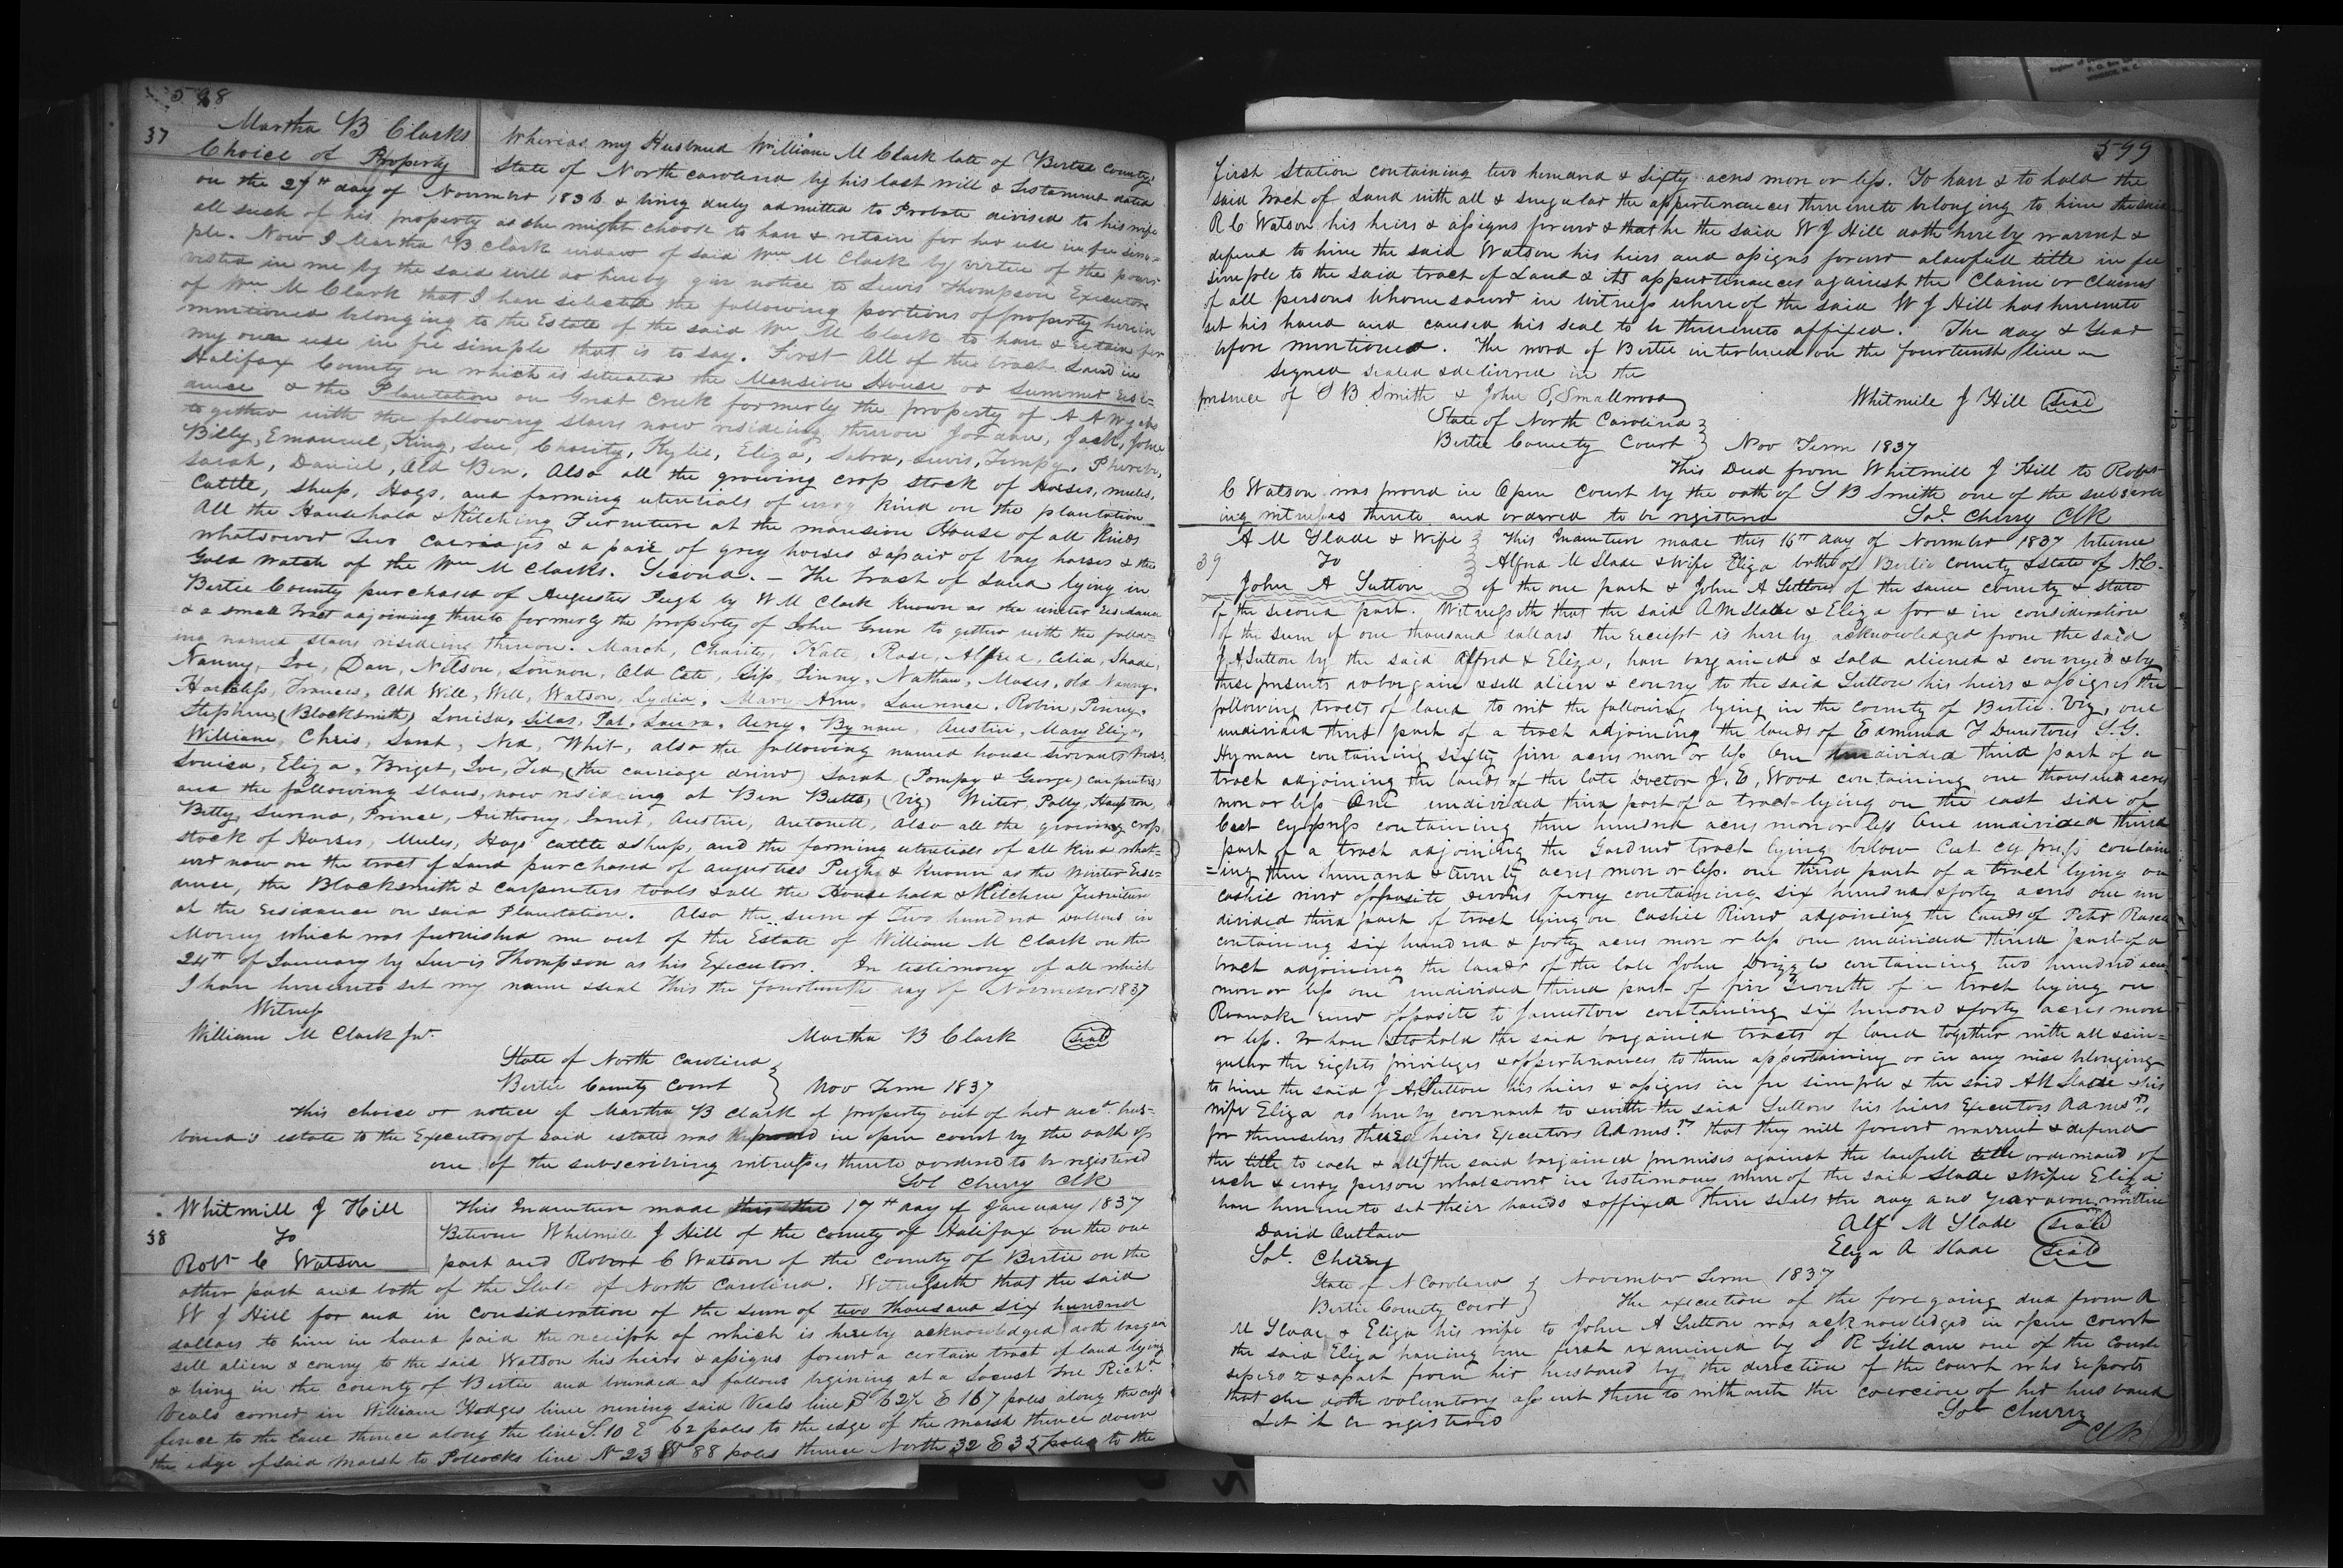 598
37
Martha B Clarks
Choice of Property
Whereas my Husband William M Clark late of Bertie County
State of North carolina by his last will & testament dated
on the 27th day of November 1836 & being duly admitted to Probate devised to his wife
all such of his property as she might choose to have & retain for her use in fee sim-
ple. Now I Martha B Clark widow of said Wm M Clark by virtue of the power
vested in me by the said will do hereby give notice to Lewis Thompson Executor
of Wm M Clark that I have selected the following portions of property herein
mentioned belonging to the Estate of the said Wm M Clark to have & retain for
my own use in fee simple that is to say. First All of the tract Land in
Halifax County on which is situated the Mansion House or Summer Resi-
dence & the Plantation on Great Creek formerly the property of A A Wyche
together with the following slaves now resideing thereon Jordan, Jack, John
Billy, Emanuel, King, Sue, Charity, Kylie, Eliza, Sabra, Lewis, Tempy, Phereby,
Sarah, Daniel, Old Ben. Also all the growing crop stock of Horses, mules,
Cattle, Sheep, Hogs, and farming utentials of every kind on the plantation
All the Household & Kitching Furniture at the mansion House of all kinds
whatsoever two carriages & a pair of grey horses & a pair of bay horses & the
Gold Watch of the Wm M Clarks. Second. - The tract of Land lying in
Bertie County purchased of Augustus Pugh by W M Clark known as the winter Residance
& a small tract adjoining thereto formerly the property of John Green to gether with the follow-
ing named slaves resideing thereon. March, Charity, Kate, Rose, Alfred, Celia, Shade,
Nanny, Joe, Dan, Nelson, Lonnon, Old Cate, Sip, Jinny, Nathan, Moses, old Nanny,
Hardless, Frances, Old Will, Will, Watson, Lydia, Mary Ann, Laurence, Robin, Penny,
Stephen (Blacksmith) Louisa, Silas, Pat, Laura, Acrey, Bynum, Austin, Mary Eliza,
William, Chris, Sarah, Ned, Whit, also the following named house servants
Louisa, Eliza, Briget, Joe, Ted (the carriage driver) Sarah (Pompey & George) carpenters
and the following slaves, now resideing at Ben Butts, (Viz) Winter, Polly, Hampton,
Betty, Surena, Prince, Anthony, Austin, Antonett, Also all the growing crop,
stock of Horses, Mules, Hogs cattle & sheep, and the farming utentials of all kind what-
ever now on the tract of Land purchased of augustus Pugh & known as the Winter Resi-
dence, the Blacksmith & carpenters tools & all the House hold & Kitchin Furniture
at the residance on said Plantation. Also the sum of Two hundred dollars in
Money which was furnished me out of the Estate of William M Clark on the
24th of January by Lewis Thompson as his Executor. In testimony of all which
I have hereunto set my name & seal this the fourteenth day of November 1837
Witness
William M Clark Jur.
Martha B Clark (seal)
State of North Carolina
Bertie County Court } Nov Term 1837
This choice or notice of Martha B Clark of property out of her decd. hus-
band's estate to the Executor of said estate was proved in open court by the oath of
one of the subscribing witnesses thereto & ordered to be registered
Sol Cherry Clk
38
Whitmill J Hill
To
Robt C Watson
This Indenture made this the 17th day of January 1837
Between Whitmill J Hill of the County of Halifax on the one
part and Robert C Watson of the County of Bertie on the
other part and both of the State of North Carolina. Witnesseth that the said
W J Hill for and in consideration of the sum of two thousand six hundred
dollars to him in hand paid the receipt of which is hereby acknowledged doth bargain
sell alien & convey to the said Watson his heirs & assigns forever a certain tract of land lying
& being in the county of Bertie and bounded as follows begining at a Locust tree Richd.
Veals corner in William Hodges line runing said Veals line S 62½ E 167 poles along the cross
fence to the lane thence along the line S. 10 E 62 poles to the edge of the marsh thence down
the edge of said marsh to Pollocks line N 23 W 88 poles thence North 32 E 35 poles to the
599
first Station containing two hundred & sixty acres more or less. To have & to hold the
said tract of Land with all & singular the appertenances thereunto belonging to him the said
R C Watson his heirs & assigns forever & that he the said W J Hill doth hereby warrent &
defend to him the said Watson his heirs and assigns forever alawfull title in fee
simple to the said tract of Land & its appurtenances against the Claim or claims
of all persons whomesoever in witness where of the said W J Hill has hereunto
set his hand and caused his seal to be thereunto affixed. The day & Year
afore mentioned. The word of Bertie interlined on the fourteenth line
Signed sealed & delivered in the
presence of S B Smith & John S, Smallwood
Whitmile J Hill (seal)
State of North Carolina
Bertie County Court } Nov Term 1837
This Deed from Whitmill J Hill to Robt
C Watson was proved in Open Court by the oath of S B Smith one of the subscrib
ing witnesses thereto and ordered to be registered Sol. Cherry Clk
39
A M Slade & Wife
To
John A Sutton
This Indenture made this 16th day of November 1837 between
Alfred M Slade & wife Eliza both of Bertie county & state of N.C.
of the one part & John A Sutton of the same county & state
of the second part. Witnesseth that the said A M Slade & Eliza for & in consideration
of the sum of one thousand dollars the receipt is hereby acknowledged from the said
J A Sutton by the said Alfred & Eliza, have bargained & sold aliened & conveyed & by
these presents do bargain & sell alien & convey to the said Sutton his heirs & assigns the
following tracts of land to wit the following lying in the county of Bertie. Viz, one
undivided third part of a tract adjoining the lands of Edmund F Dunstons S.G.
Hyman containing sixty five acres more or less One undivided third part of a
tract adjoining the lands of the late Doctor J. E, Wood containing one thousand acres
more or less One undivided third part of a tract lying on the east side of
Cut cypress containing three hundred acres more or less One undivided third
part of a tract adjoining the Gardner tract lying below Cut cypress contain
=ing three hundred & twenty acres more or less. one third part of a tract lying on
cashie river opposite ferry containing six hundred & forty acres one un
divided third part of tract lying on Cashie River adjoining the lands of Peter Rascoe
containing six hundred & forty acres more or less one undivided third part of a
tract adjoining the lands of the late John Drizzle containing two hundred acres
more or less one undivided third part of five Seventh of a tract lying on
Roanoke river opposite to Jameston containing six hundred & forty acres more
or less. To have & to hold the said bargained tracts of land together with all & sin=
gular the rights privileges & appertenances to them appertaining or in any wise belonging
to him the said J A Sutton his heirs & assigns in fee simple & the said A M Slade & his
wife Eliza do hereby covenant to & with the said Sutton his heirs Executors Admrs.,
for themselves heirs Executors Admrs. that they will forever warrent & defend
the title to each & all of the said bargained premises against the lawfull title or demand of
each & every person whatsoever in testimony where of the said Slade & Wife Eliza
have hereunto set their hands & affixed their seals the day and year above written
David Outlaw
Sol. Cherry
Alf M Slade (seal)
Eliza A Slade (seal)
State of N Carolina
Bertie County Court } November Term 1837
The execution of the foregoing deed from A
M Slade & Eliza his wife to John A Sutton was acknowledged in open court
the said Eliza having been first examined by J R Gilliam one of the Court
seperate & apart from her husband by the direction of the court who reports
that she doth voluntary assent there to without the coercion of her husband
Let it be registered
Sol Cherry
Clk